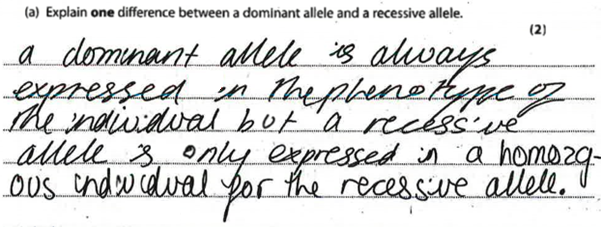 (a) Explain one difference between a dominant allele and a recessive allele.
(2)
a dominant allele is always
expressed in the phenotype of
the individual but a recessive
allele is only expressed in a homozg-
ous individual for the recessive allele.